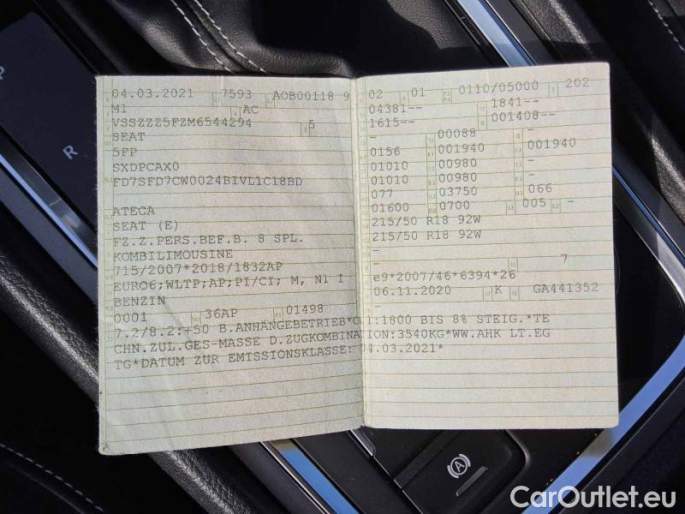 P
R
04.03.2021 7593 AOB00118 9
M1 AC
VSSZZZ5FZM6544294 5
SEAT
5FP
SXDPCAX0
FD7SFD7CW0024BIVL1C18BD
ATECA
SEAT (E)
FZ.Z.PERS.BEF.B. 8 SPL.
KOMBILIMOUSINE
715/2007*2018/1832AP
EURO6;WLTP;AP;PI/CI; M, N1 I
BENZIN
0001 36AP 01498
7.2/8.2:+50 B.ANHÄNGEBETRIEB*O.1:1800 BIS 8% STEIG.*TE
CHN.ZUL.GES-MASSE D.ZUGKOMBINATION:3540KG*WW.AHK LT.EG
TG*DATUM ZUR EMISSIONSKLASSE: 04.03.2021*
02 01 0110/05000 202
04381-- 1841--
1615-- 001408--
- 00088 -
0156 001940 001940
01010 00980 -
01010 00980 -
077 03750 066
01600 0700 005 -
215/50 R18 92W
215/50 R18 92W
- 7
e9*2007/46*6394*26
06.11.2020 K GA441352
A
CarOutlet.eu